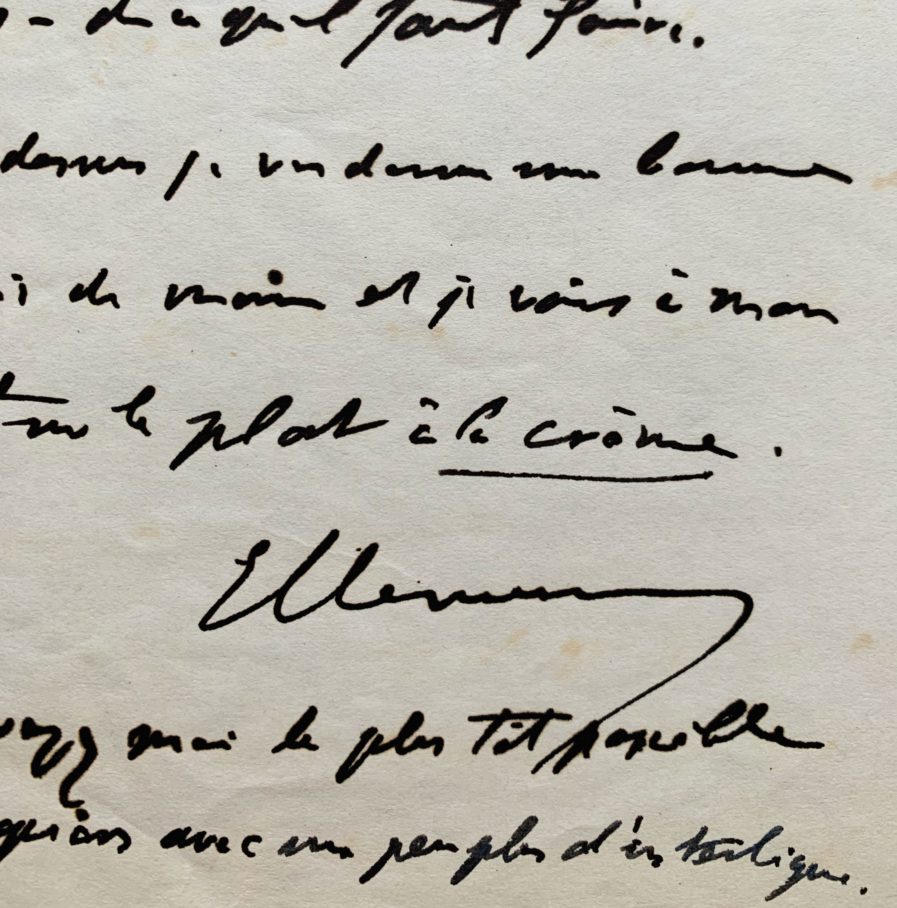 ce qu'il faut faire.
dessus je vous donne une bonne
de main et je vais à mon
sur le plat à la crème.
moi le plus tôt possible
avec un peu plus d'interligne.